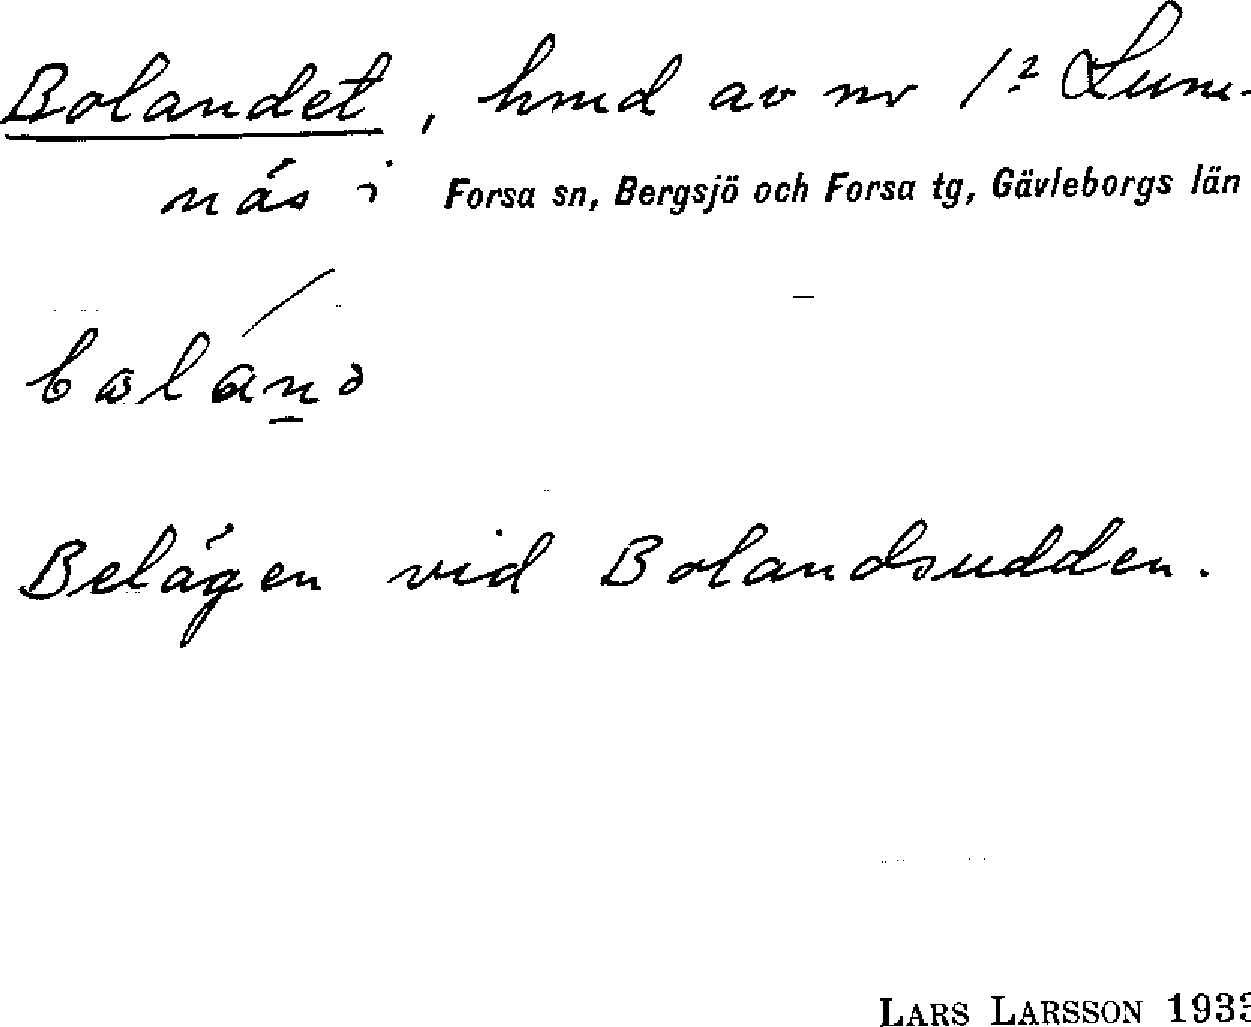 Bolandet, hmd av nr 1² Lum-
näs i Forsa sn, Bergsjö och Forsa tg, Gävleborgs län
Belägen vid Bolandsudden.
LARS LARSSON 1933